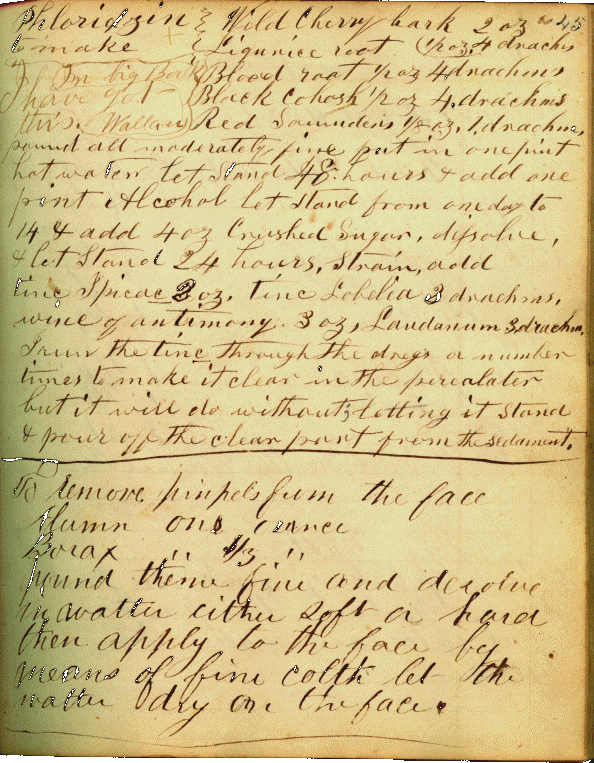 Phloridzin { Wild Cherry bark 2 oz 45
to make { Liqurice root (1/2 oz, 4 drachms
In big Book { Blood root 1/2 oz 4 drachms
I have got { Black Cohosh 1/2 oz 4 drachms
this. Wallace { Red Saunders 1/8 oz, 1, drachm,
pound all moderately fine put in one pint
hot water let stand 48 hours & add one
pint Alcohol let stand from one day to
14 & add 4 oz Crushed Sugar, dissolve,
& let Stand 24 hours, Strain, add
tinc Ipicac 3 oz, tinc Lobelia 3 drachms,
wine of antimony 3 oz, Laudanum 3 drachm,
I run the tinc through the dregs a number
times to make it clear in the percalater
but it will do without, letting it stand
& pour off the clear part from the sedament.
To remove pinpels from the face
Alumn one ounce
Borax " 1/3 "
pound theme fine and desolve
in watter either soft or hard
then apply to the face by
means of fine colth let the
watter dry on the face.